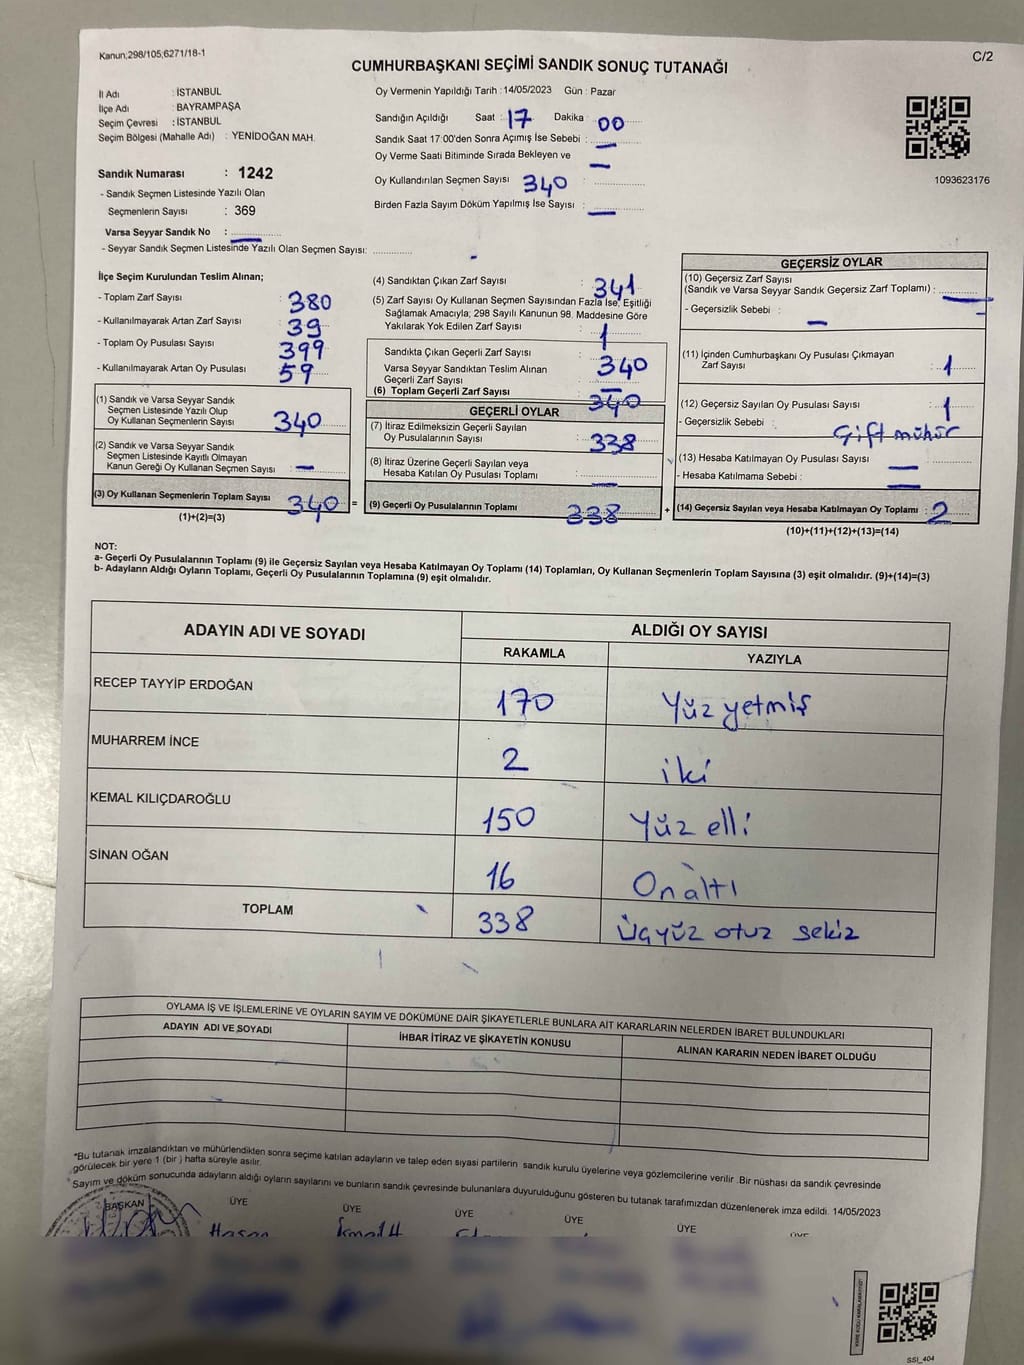 Kanun;298/105,6271/18-1
C/2
CUMHURBAŞKANI SEÇİMİ SANDIK SONUÇ TUTANAĞI
İl Adı : İSTANBUL
İlçe Adı : BAYRAMPAŞA
Seçim Çevresi : İSTANBUL
Seçim Bölgesi (Mahalle Adı) : YENİDOĞAN MAH.
Sandık Numarası : 1242
- Sandık Seçmen Listesinde Yazılı Olan
Seçmenlerin Sayısı : 369
Varsa Seyyar Sandık No :
- Seyyar Sandık Seçmen Listesinde Yazılı Olan Seçmen Sayısı:
Oy Vermenin Yapıldığı Tarih : 14/05/2023 Gün : Pazar
Sandığın Açıldığı Saat : 17 Dakika 00
Sandık Saat 17:00'den Sonra Açımış İse Sebebi :
Oy Verme Saati Bitiminde Sırada Bekleyen ve
Oy Kullandırılan Seçmen Sayısı : 340
Birden Fazla Sayım Döküm Yapılmış İse Sayısı :
1093623176
İlçe Seçim Kurulundan Teslim Alınan;
- Toplam Zarf Sayısı : 380
- Kullanılmayarak Artan Zarf Sayısı : 39
- Toplam Oy Pusulası Sayısı : 399
- Kullanılmayarak Artan Oy Pusulası : 59
(1) Sandık ve Varsa Seyyar Sandık
Seçmen Listesinde Yazılı Olup
Oy Kullanan Seçmenlerin Sayısı : 340
(2) Sandık ve Varsa Seyyar Sandık
Seçmen Listesinde Kayıtlı Olmayan
Kanun Gereği Oy Kullanan Seçmen Sayısı : –
(3) Oy Kullanan Seçmenlerin Toplam Sayısı : 340
(1)+(2)=(3)
=
(4) Sandıktan Çıkan Zarf Sayısı : 341
(5) Zarf Sayısı Oy Kullanan Seçmen Sayısından Fazla İse, Eşitliği
Sağlamak Amacıyla; 298 Sayılı Kanunun 98. Maddesine Göre
Yakılarak Yok Edilen Zarf Sayısı : 1
Sandıkta Çıkan Geçerli Zarf Sayısı : 340
Varsa Seyyar Sandıktan Teslim Alınan
Geçerli Zarf Sayısı : –
(6) Toplam Geçerli Zarf Sayısı : 340
GEÇERLİ OYLAR
(7) İtiraz Edilmeksizin Geçerli Sayılan
Oy Pusulalarının Sayısı : 338
(8) İtiraz Üzerine Geçerli Sayılan veya
Hesaba Katılan Oy Pusulası Toplamı : –
(9) Geçerli Oy Pusulalarının Toplamı : 338
+
GEÇERSİZ OYLAR
(10) Geçersiz Zarf Sayısı
(Sandık ve Varsa Seyyar Sandık Geçersiz Zarf Toplamı) : –
- Geçersizlik Sebebi : –
(11) İçinden Cumhurbaşkanı Oy Pusulası Çıkmayan
Zarf Sayısı : 1
(12) Geçersiz Sayılan Oy Pusulası Sayısı : 1
- Geçersizlik Sebebi : Çift mühür
(13) Hesaba Katılmayan Oy Pusulası Sayısı : –
- Hesaba Katılmama Sebebi : –
(14) Geçersiz Sayılan veya Hesaba Katılmayan Oy Toplamı : 2
(10)+(11)+(12)+(13)=(14)
NOT:
a- Geçerli Oy Pusulalarının Toplamı (9) ile Geçersiz Sayılan veya Hesaba Katılmayan Oy Toplamı (14) Toplamları, Oy Kullanan Seçmenlerin Toplam Sayısına (3) eşit olmalıdır. (9)+(14)=(3)
b- Adayların Aldığı Oyların Toplamı, Geçerli Oy Pusulalarının Toplamına (9) eşit olmalıdır.
ADAYIN ADI VE SOYADI ALDIĞI OY SAYISI
RAKAMLA YAZIYLA
RECEP TAYYİP ERDOĞAN 170 Yüz yetmiş
MUHARREM İNCE 2 iki
KEMAL KILIÇDAROĞLU 150 Yüz elli
SİNAN OĞAN 16 On altı
TOPLAM 338 Üçyüz otuz sekiz
OYLAMA İŞ VE İŞLEMLERİNE VE OYLARIN SAYIM VE DÖKÜMÜNE DAİR ŞİKAYETLERLE BUNLARA AİT KARARLARIN NELERDEN İBARET BULUNDUKLARI
ADAYIN ADI VE SOYADI İHBAR İTİRAZ VE ŞİKAYETİN KONUSU ALINAN KARARIN NEDEN İBARET OLDUĞU
*Bu tutanak imzalandıktan ve mühürlendikten sonra seçime katılan adayların ve talep eden siyasi partilerin sandık kurulu üyelerine veya gözlemcilerine verilir .Bir nüshası da sandık çevresinde
görülecek bir yere 1 (bir ) hafta süreyle asılır.
Sayım ve döküm sonucunda adayların aldığı oyların sayılarını ve bunların sandık çevresinde bulunanlara duyurulduğunu gösteren bu tutanak tarafımızdan düzenlenerek imza edildi. 14/05/2023
BAŞKAN ÜYE ÜYE ÜYE ÜYE ÜYE ÜYE
Hasan
SSI_404